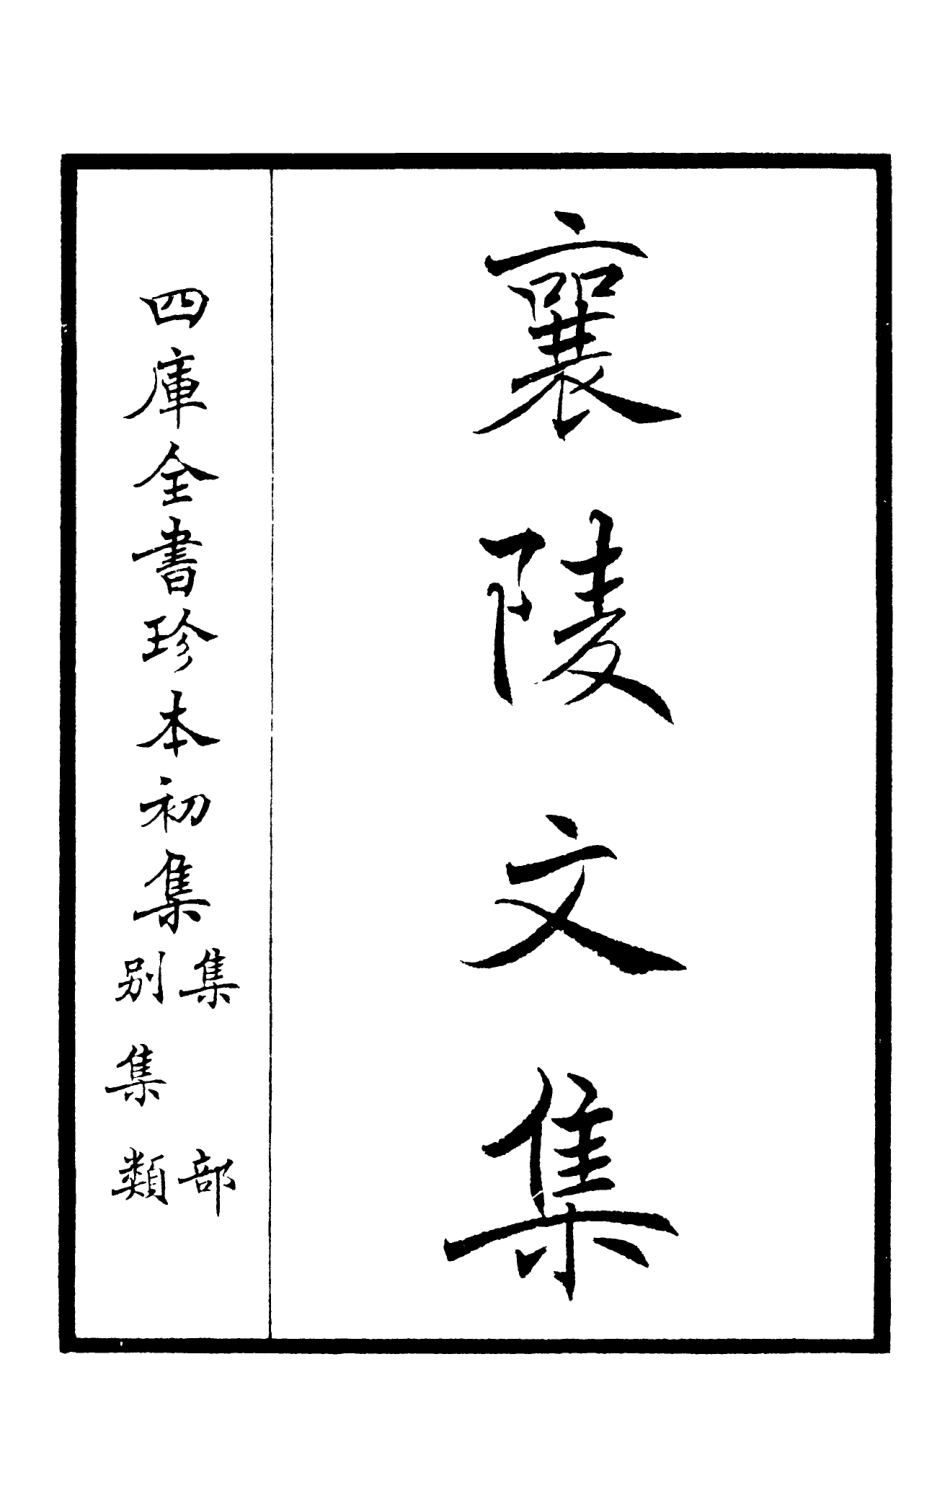 襄陵文集
四庫全書珍本初集
集部
別集類